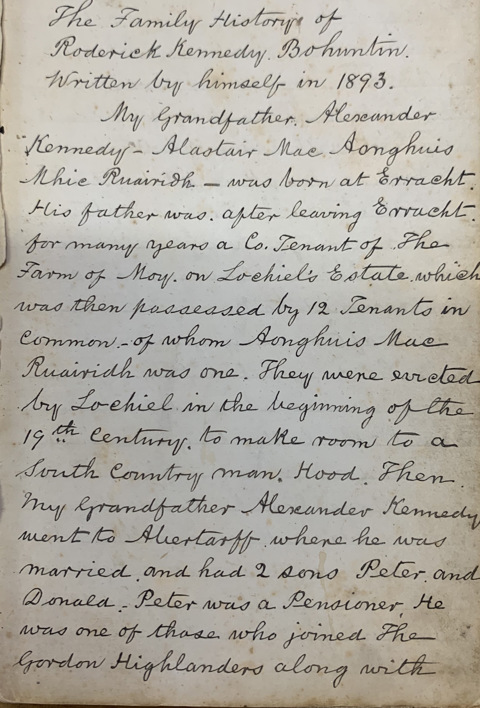 The Family History of
Roderick Kennedy. Bohuntin.
Written by himself in 1893.
My Grandfather. Alexander
Kennedy - Alastair Mac Aonghuis
Mhic Ruairidh - was born at Erracht.
His father was. after leaving Erracht.
for many years a Co. Tenant of The
Farm of Moy. on Lochiel's Estate. which
was then possessed by 12 Tenants in
common - of whom Aonghuis Mac
Ruairidh was one. They were evicted
by Lochiel in the beginning of the
19th Century. to make room to a
South Country man. Hood. Then.
My Grandfather Alexander Kennedy
went to Abertarff. where he was
married. and had 2 sons Peter. and
Donald. Peter was a Pensioner. He
was one of those who joined The
Gordon Highlanders along with